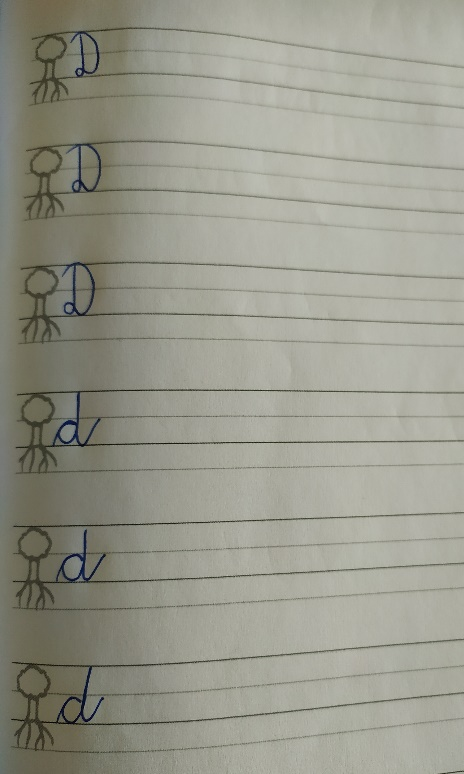 D
D
D
d
d
d